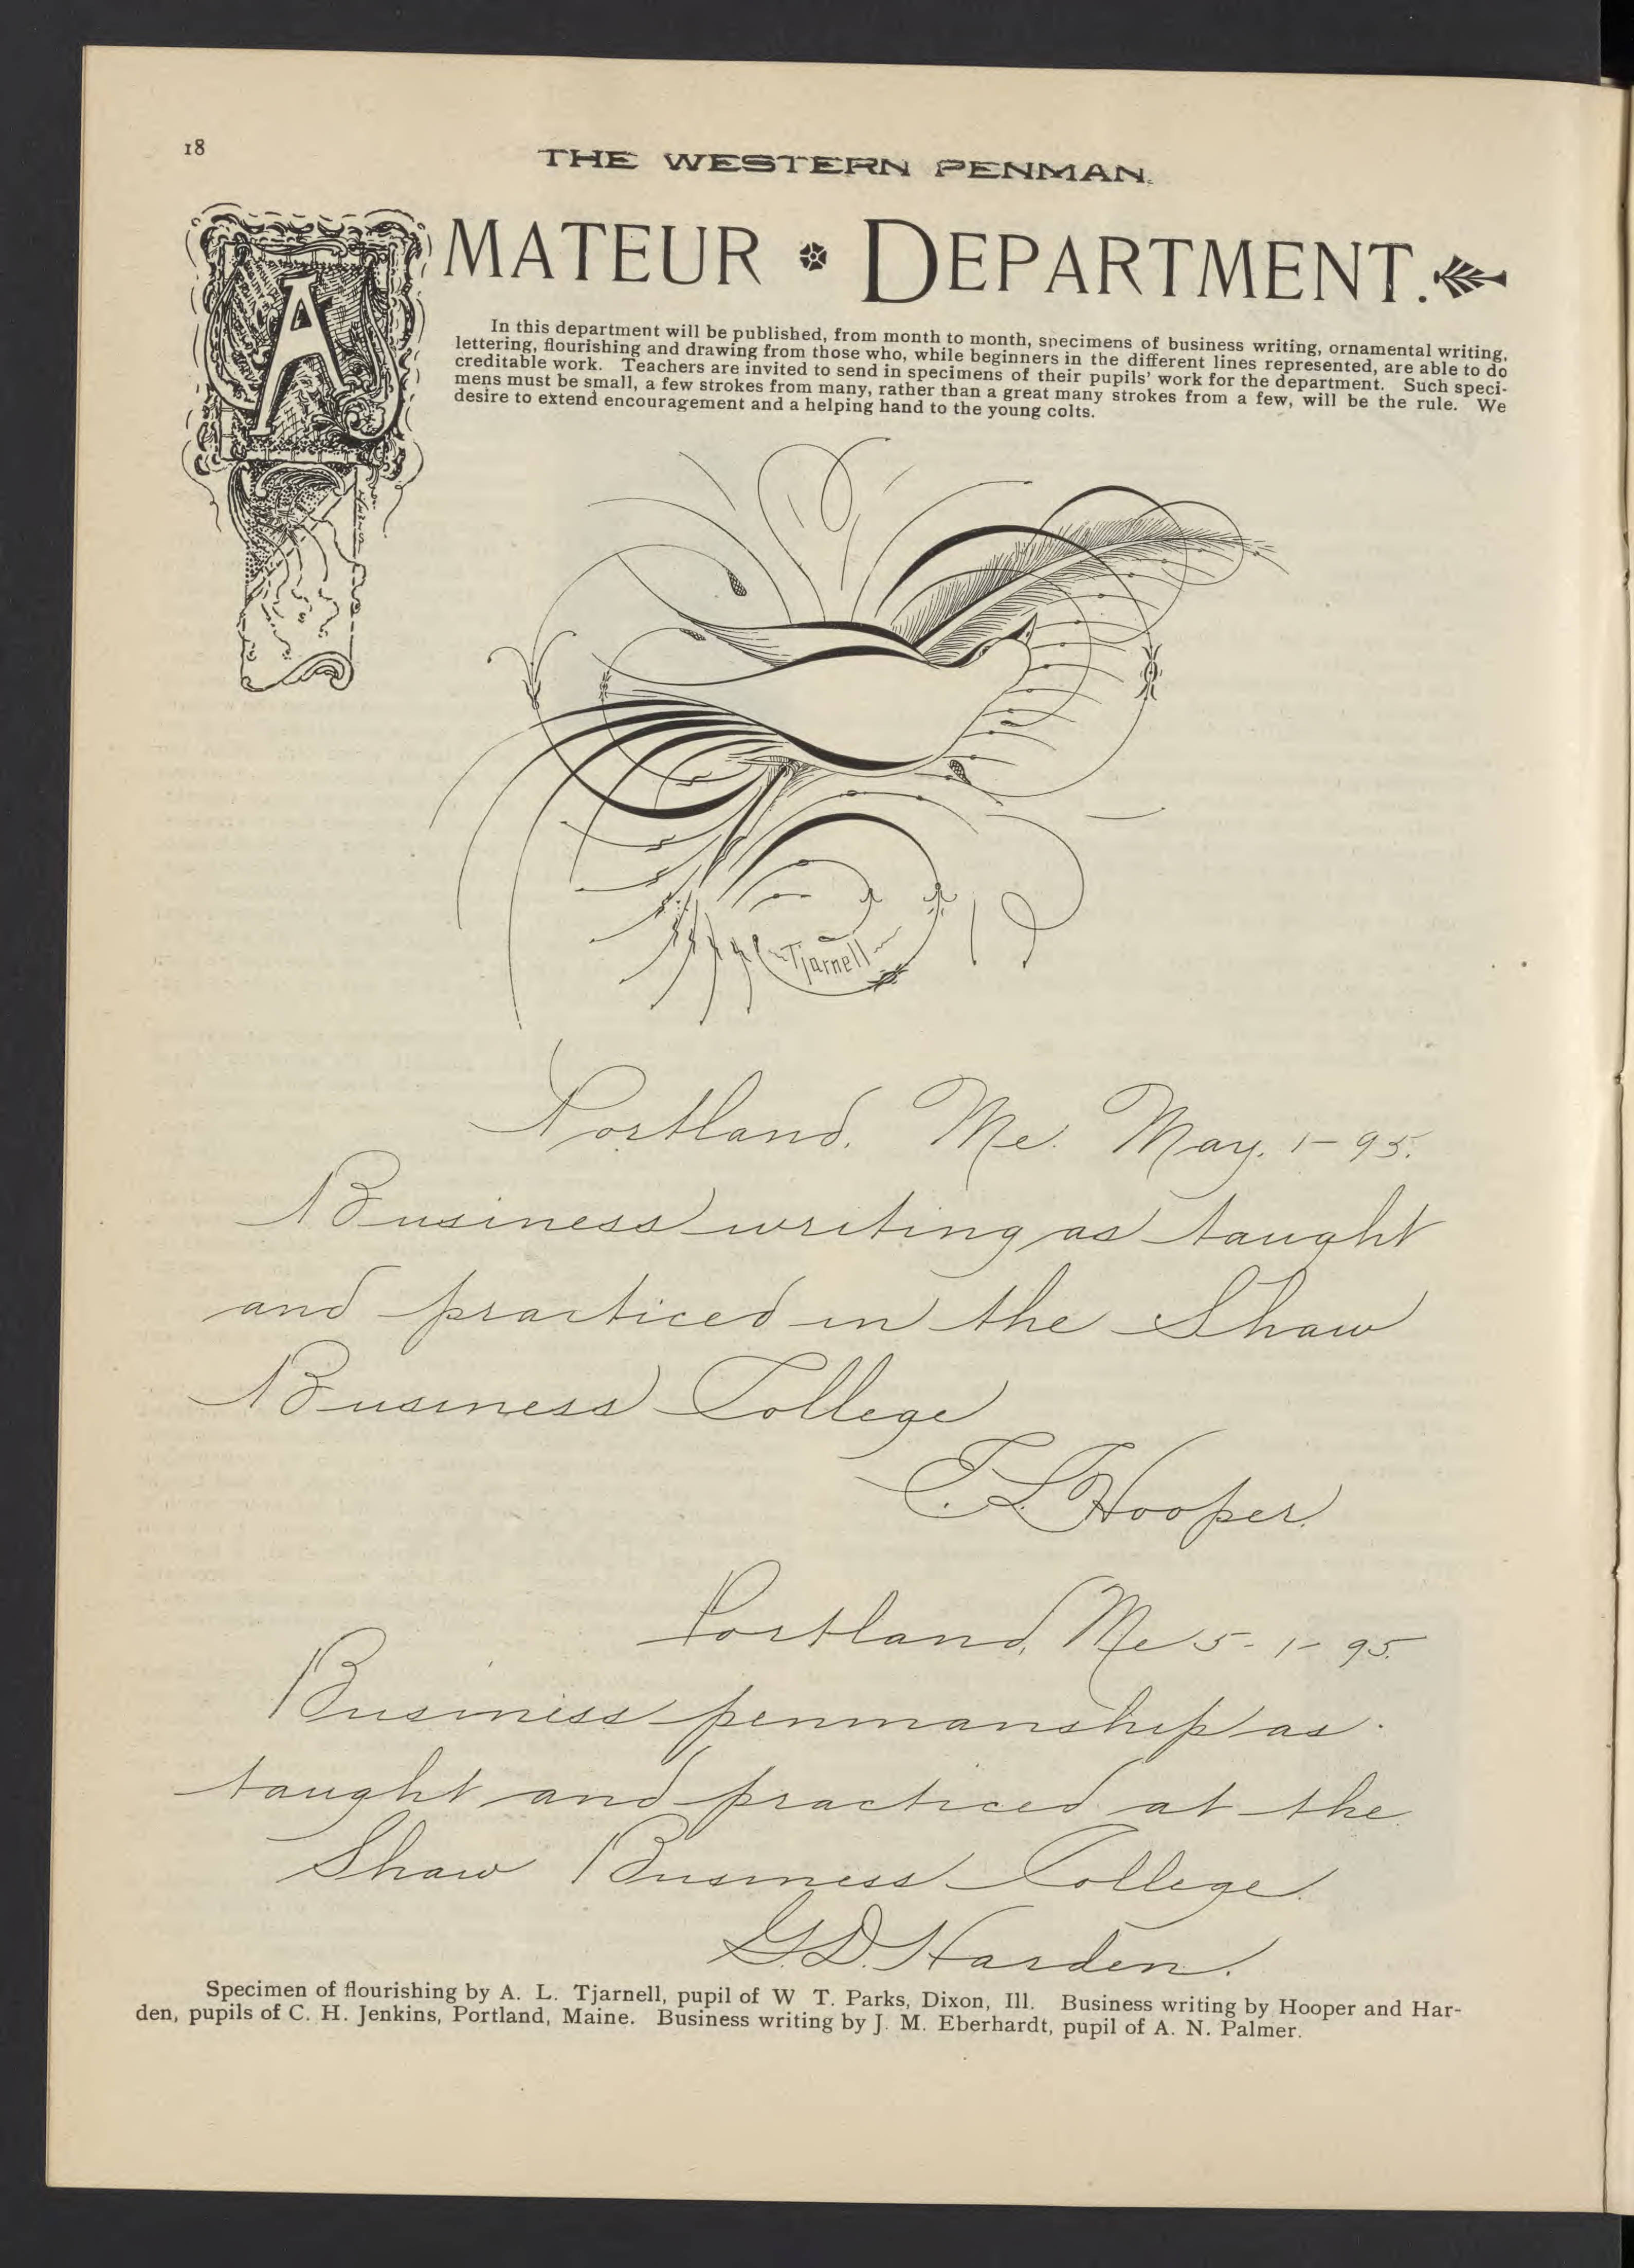 18
THE WESTERN PENMAN.
AMATEUR DEPARTMENT.
In this department will be published, from month to month, specimens of business writing, ornamental writing,
lettering, flourishing and drawing from those who, while beginners in the different lines represented, are able to do
creditable work. Teachers are invited to send in specimens of their pupils' work for the department. Such speci-
mens must be small, a few strokes from many, rather than a great many strokes from a few, will be the rule. We
desire to extend encouragement and a helping hand to the young colts.
Tjarnell
Portland, Me. May, 1-95.
Business writing as taught
and practiced in the Shaw
Business College
E. L. Hooper.
Portland, Me 5-1-95.
Business penmanship as
taught and practiced at the
Shaw Business College.
G. D. Harden.
Specimen of flourishing by A. L. Tjarnell, pupil of W T. Parks, Dixon, Ill. Business writing by Hooper and Har-
den, pupils of C. H. Jenkins, Portland, Maine. Business writing by J. M. Eberhardt, pupil of A. N. Palmer.